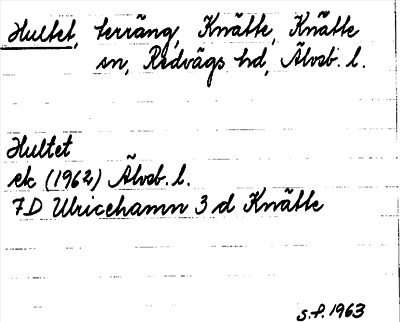 Hultet, terräng, Knätte, Knätte
sn, Redvägs hd, Älvsb. l.
Hultet
ek (1962) Älvsb. l.
7D Ulricehamn 3 d Knätte
s.f. 1963